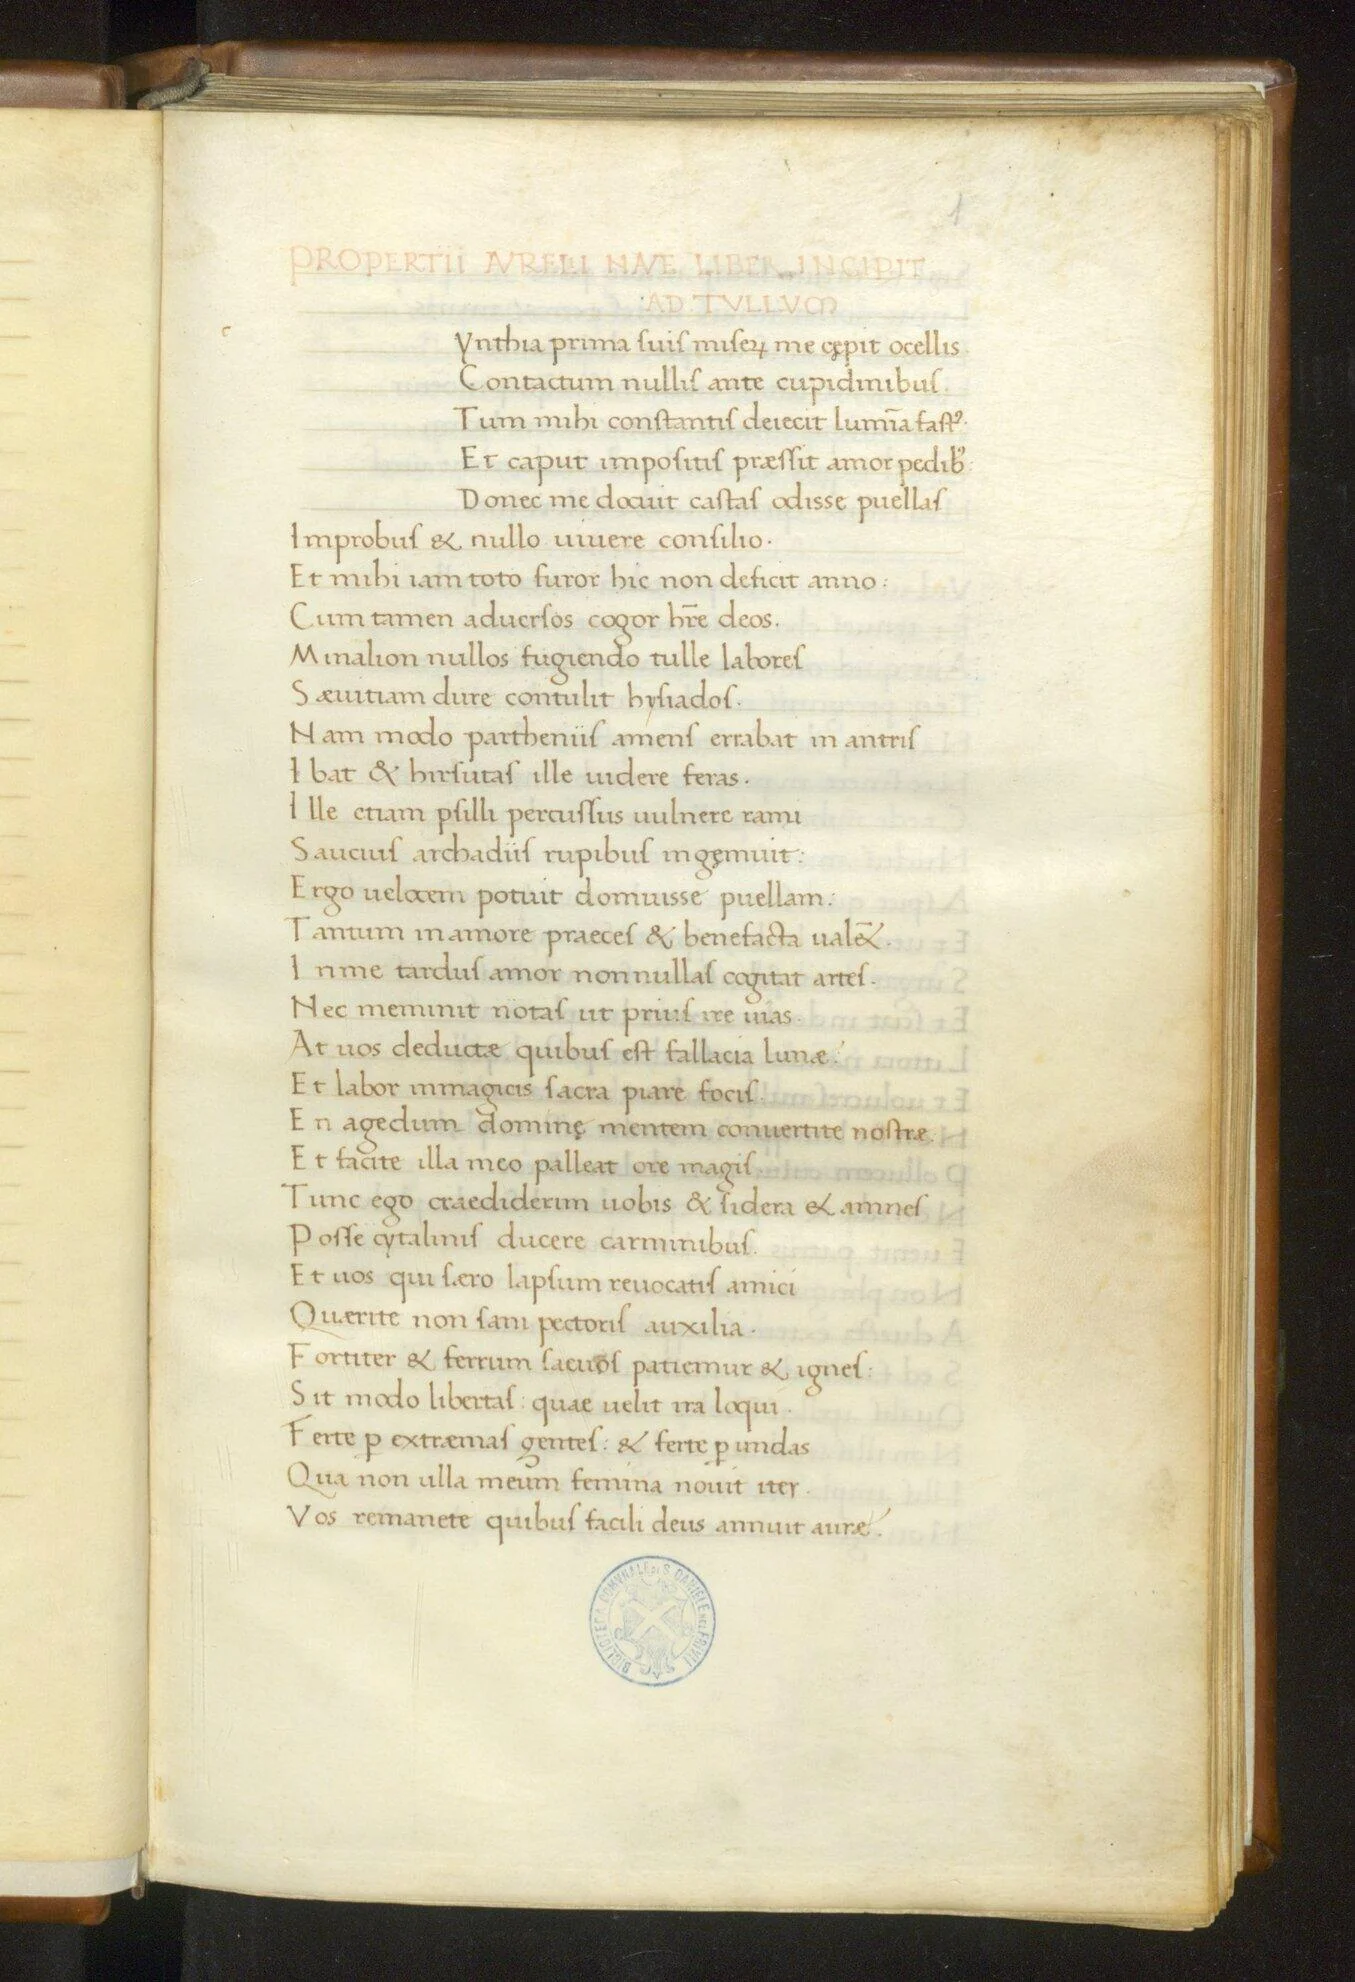 1
PROPERTII AVRELII NAVE LIBER INCIPIT
AD TVLLVM
c
Ynthia prima suis miseꝝ me cępit ocellis.
Contactum nullis ante cupidinibus.
Tum mihi constantis deiecit lumīa fastꝰ.
Et caput impositis præssit amor pedibꝰ:
Donec me docuit castas odisse puellas
Improbus & nullo uiuere consilio.
Et mihi iam toto furor hic non deficit anno:
Cum tamen aduersos cogor hr̄e deos.
Minalion nullos fugiendo tulle labores
Sæuitiam dure contulit hysiados.
Nam modo partheniis amens errabat in antris
Ibat & hirsutas ille uidere feras.
Ille etiam psilli percussus uulnere rami
Saucius archadiis rupibus ingęmuit:
Ergo uelocem potuit domuisse puellam:
Tantum in amore praeces & benefacta ualē&.
In me tardus amor non nullas cogitat artes.
Nec meminit notas ut prius ire uias.
At uos deductæ quibus est fallacia lunæ:
Et labor in magicis sacra piare focis.
En agedum dominę mentem conuertite nostræ.
Et facite illa meo palleat ore magis.
Tunc ego craediderim uobis & sidera & amnes
Posse cytalinis ducere carminibus.
Et uos qui særo lapsum reuocatis amici
Quærite non sani pectoris auxilia.
Fortiter & ferrum saeuos patiemur & ignes:
Sit modo libertas: quae uelit ira loqui.
Ferte ꝑ extræmas gentes: & ferte ꝑ undas
Qua non ulla meum femina nouit iter.
Vos remanete quibus facili deus annuit auræ.
BIBLIOTECA COMUNALE DI S. DANIELE NEL FRIULI